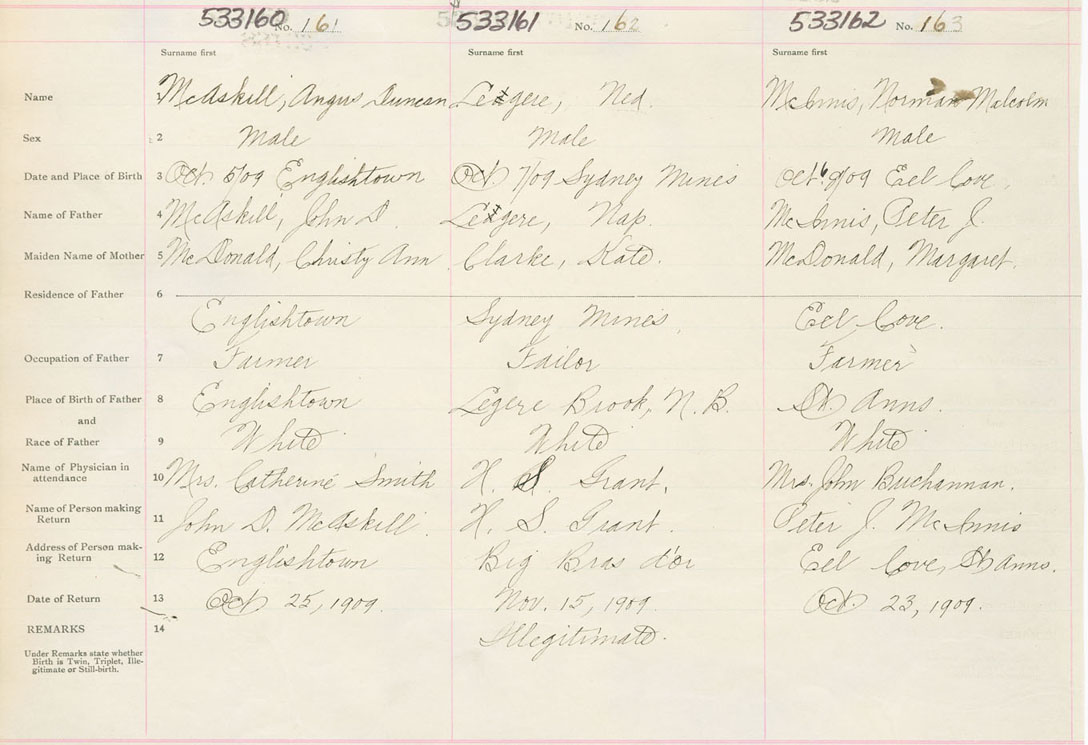 533160 No. 161 533161 No. 162 533162 No. 163
Surname first Surname first Surname first
Name 1 McAskill, Angus Duncan Legere, Ned. McInnis, Norman Malcolm
Sex 2 Male Male Male
Date and Place of Birth 3 Oct. 5/09 Englishtown Oct. 7/09 Sydney Mines Oct. 9/09 Eel Cove.
Name of Father 4 McAskill, John D. Legere, Nap. McInnis, Peter J.
Maiden Name of Mother 5 McDonald, Christy Ann Clarke, Kate. McDonald, Margaret.
Residence of Father 6
Englishtown Sydney Mines Eel Cove.
Occupation of Father 7 Farmer Tailor Farmer
Place of Birth of Father 8 Englishtown Legere Brook, N.B. St. Anns.
and
Race of Father 9 White White White
Name of Physician in
attendance 10 Mrs. Catherine Smith H. S. Grant. Mrs. John Buchannan.
Name of Person making
Return 11 John D. McAskill. H. S. Grant. Peter J. McInnis
Address of Person mak-
ing Return 12 Englishtown Big Bras d'or Eel Cove, St Anns.
Date of Return 13 Oct 25, 1909. Nov. 15, 1909. Oct. 23, 1909.
REMARKS 14 Illegitimate.
Under Remarks state whether
Birth is Twin, Triplet, Ille-
gitimate or Still-birth.